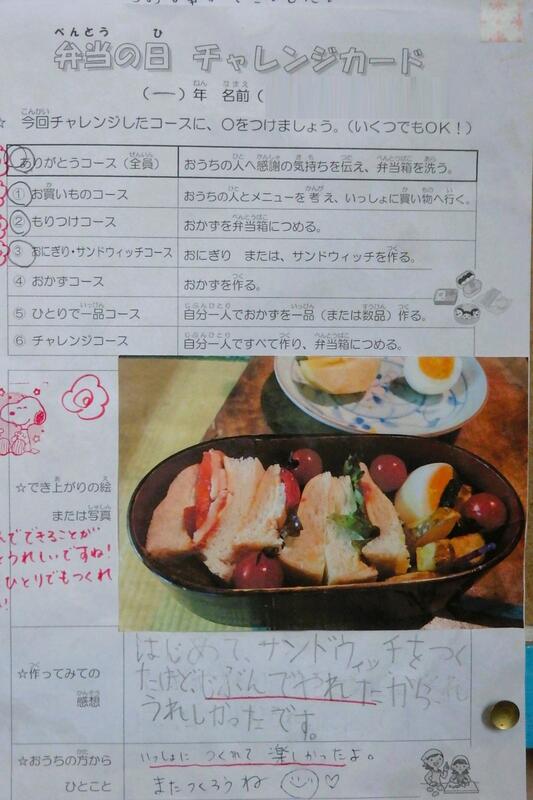 弁当の日 チャレンジカード
(一)年 名前(
☆ 今回チャレンジしたコースに、○をつけましょう。(いくつでもOK!)
ありがとうコース(全員) おうちの人へ感謝の気持ちを伝え、弁当箱を洗う。
① お買いものコース おうちの人とメニューを考え、いっしょに買い物へ行く。
② もりつけコース おかずを弁当箱につめる。
③ おにぎり・サンドウィッチコース おにぎり または、サンドウィッチを作る。
④ おかずコース おかずを作る。
⑤ ひとりで一品コース 自分一人でおかずを一品(または数品)作る。
⑥ チャレンジコース 自分一人ですべて作り、弁当箱につめる。
☆でき上がりの絵
または写真
でできることが
うれしいですね!
ひとりでもつくれ
☆作ってみての
感想
はじめて、サンドウィッチをつく
たけど、じぶんでやれたから
うれしかったです。
☆おうちの方から
ひとこと
いっしょに つくれて 楽しかったよ。
またつくろうね